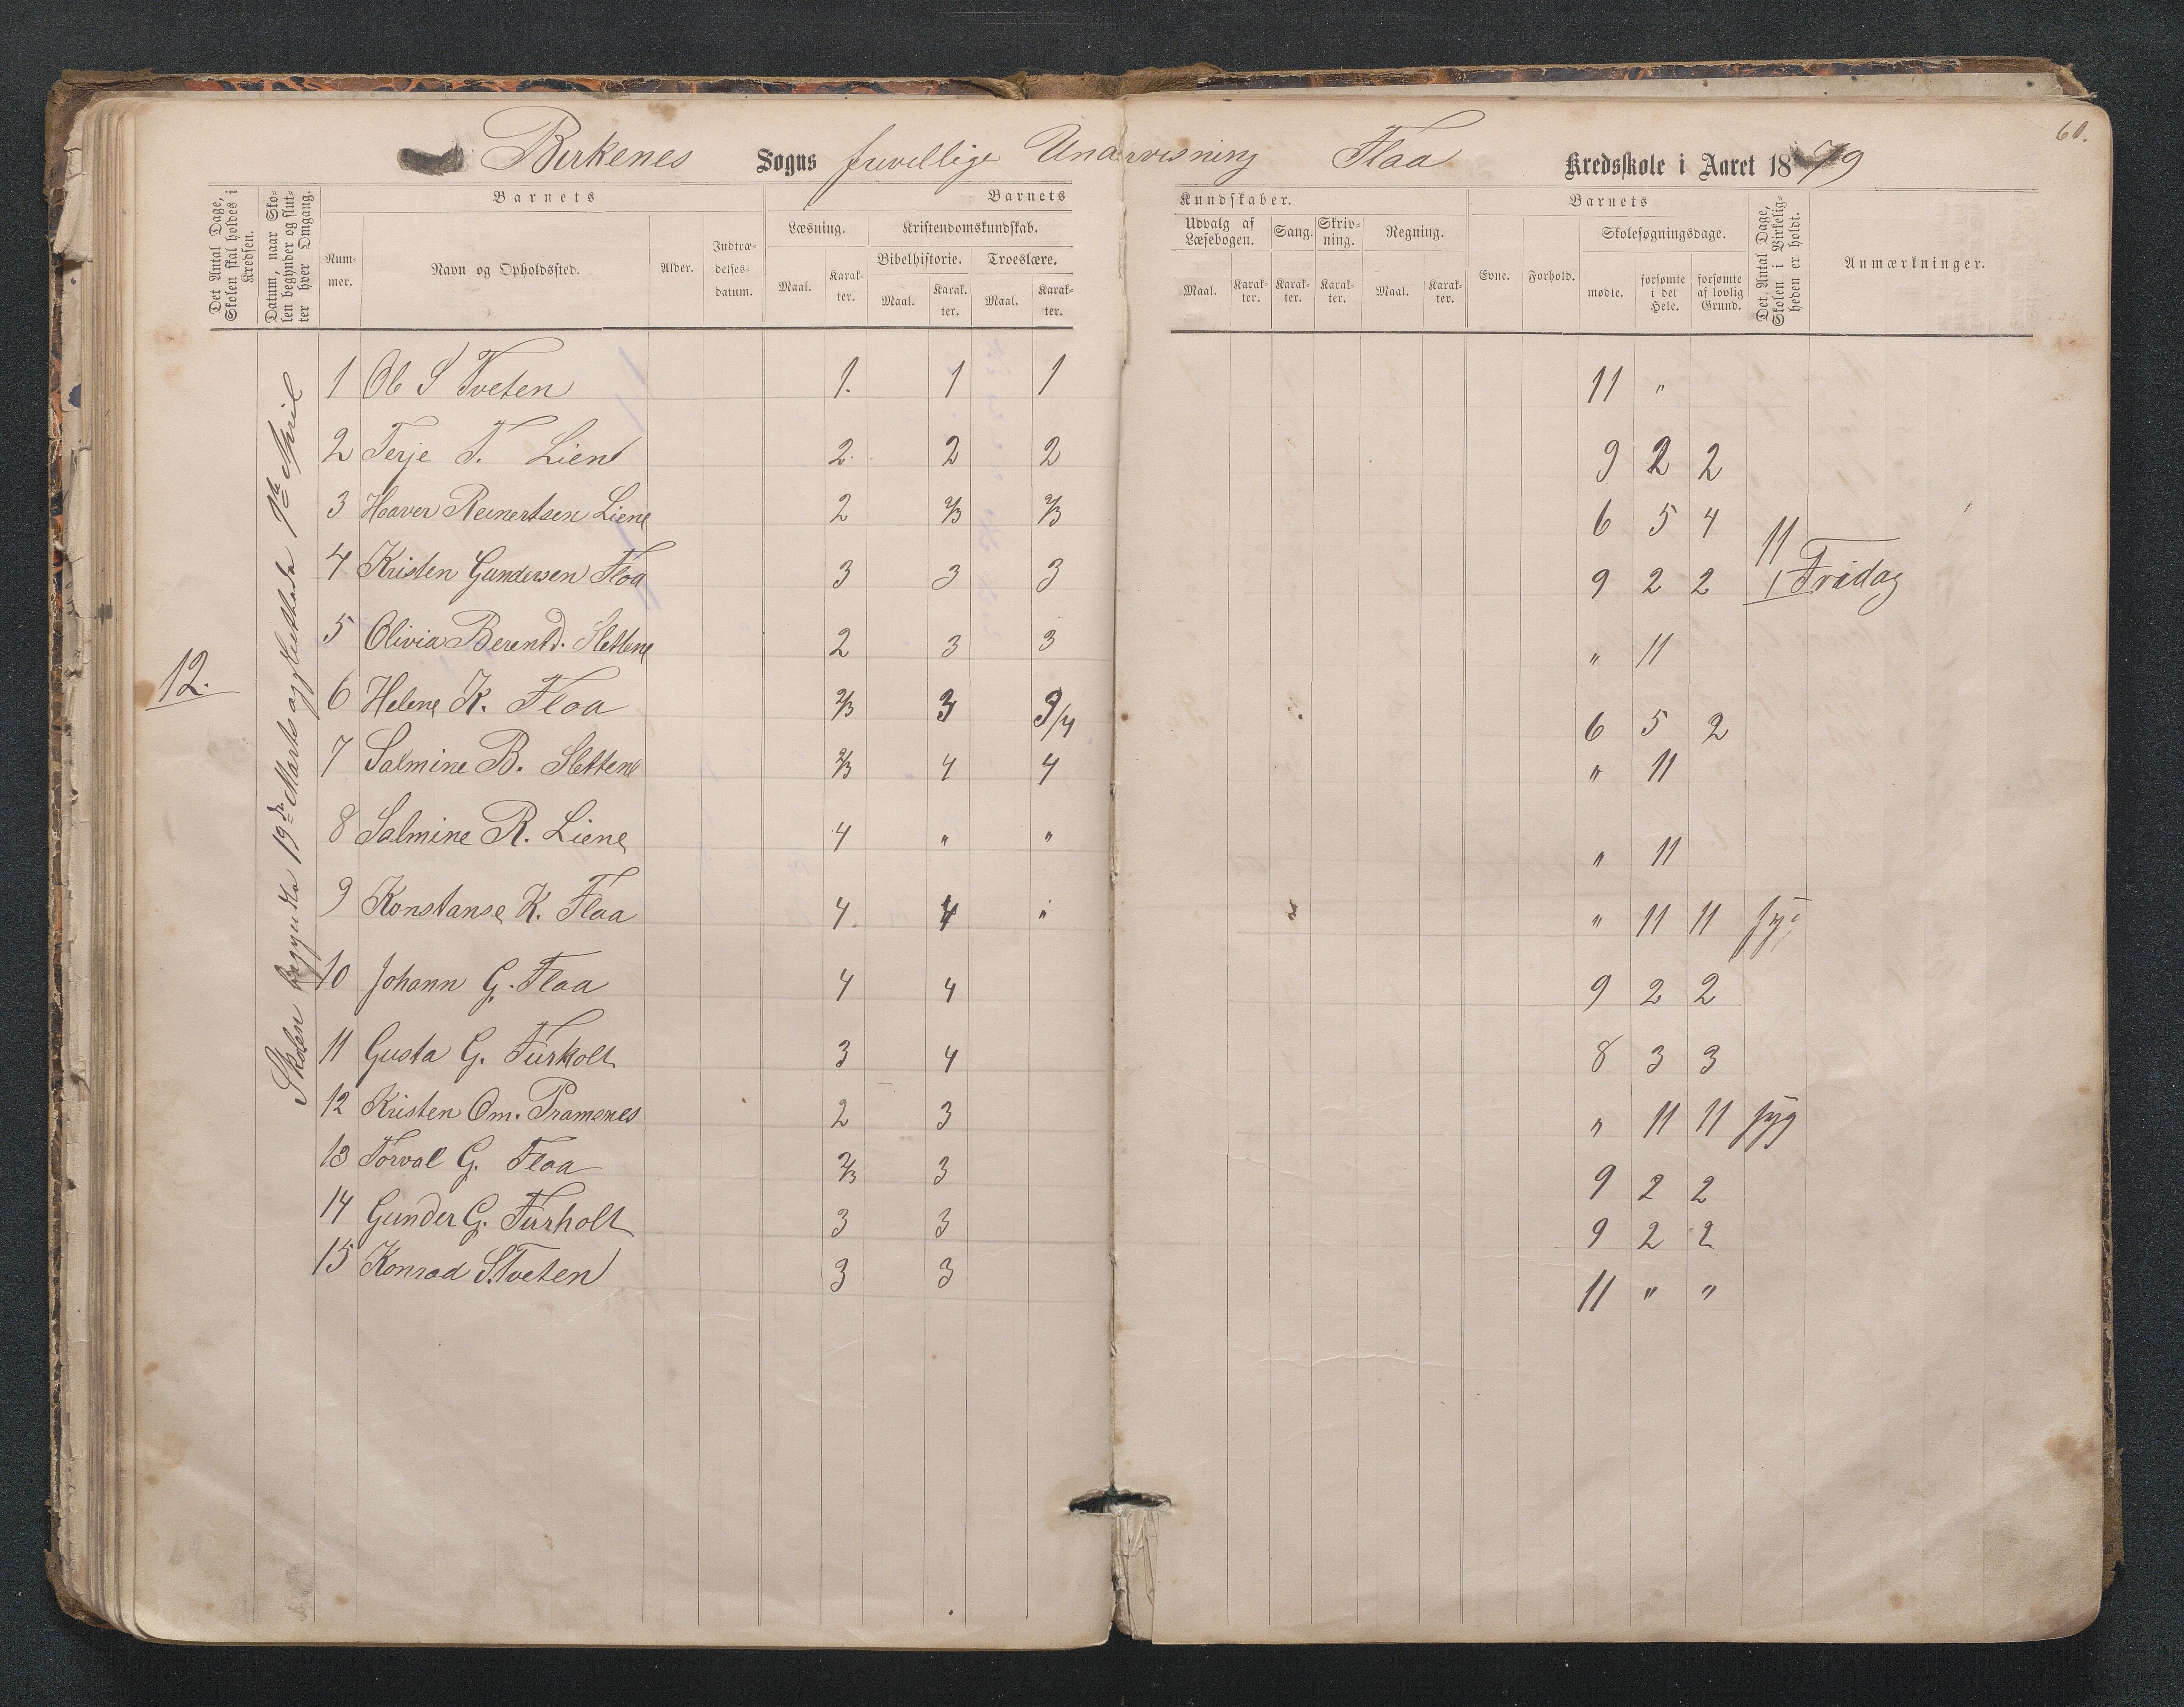 60.
Birkenes Sogns frivellige Undervisning Flaa Kredsskole i Aaret 1879
Det Antal Dage, Skolen skal holdes i Kredsen.
Datum, naar Skolen begynder og slutter hver Omgang.
Barnets
Nummer.
Navn og Opholdssted.
Alder.
Indtrædelsesdatum.
Barnets Kundskaber.
Læsning.
Maal. Karakter.
Kristendomskundskab.
Bibelhistorie. Troeslære.
Maal. Karakter. Maal. Karakter.
Udvalg af Læsebogen. Sang. Skrivning. Regning.
Maal. Karakter. Karakter. Karakter. Maal. Karakter.
Barnets
Evne. Forhold. Skolesøgningsdage.
mødte. forsømte i det Hele. forsømte af lovlig Grund.
Det Antal Dage, Skolen i Virkeligheden er holdt.
Anmærkninger.
12.
Skolen begyndte 19de Marts og sluttede 1ste April
1 Ole S Tveten 1. 1 1 11 "
2 Terje T. Liene 2. 2 2 9 2 2
3 Haaver Reinertsen Liene 2 2/3 2/3 6 5 4 11
4 Kristen Gundersen Flaa 3 3 3 9 2 2 1 Fridag
5 Olivia Berentd. Slettene 2 3 3 " 11
6 Helene K. Flaa 2/3 3 3/4 6 5 2
7 Salmine B. Slettene 2/3 4 4 " 11
8 Salmine R. Liene 4 " " " 11
9 Konstanse K. Flaa 4. 4 " " 11 11 syg
10 Johann G. Flaa 4 4 9 2 2
11 Gusta G. Furholt 3 4 8 3 3
12 Kristen Om. Pramsnes 2 3 " 11 11 syg
13 Torval G. Flaa 2/3 3 9 2 2
14 Gunder G. Furholt 3 3 9 2 2
15 Konrad S. Tveten 3 3 11 " "